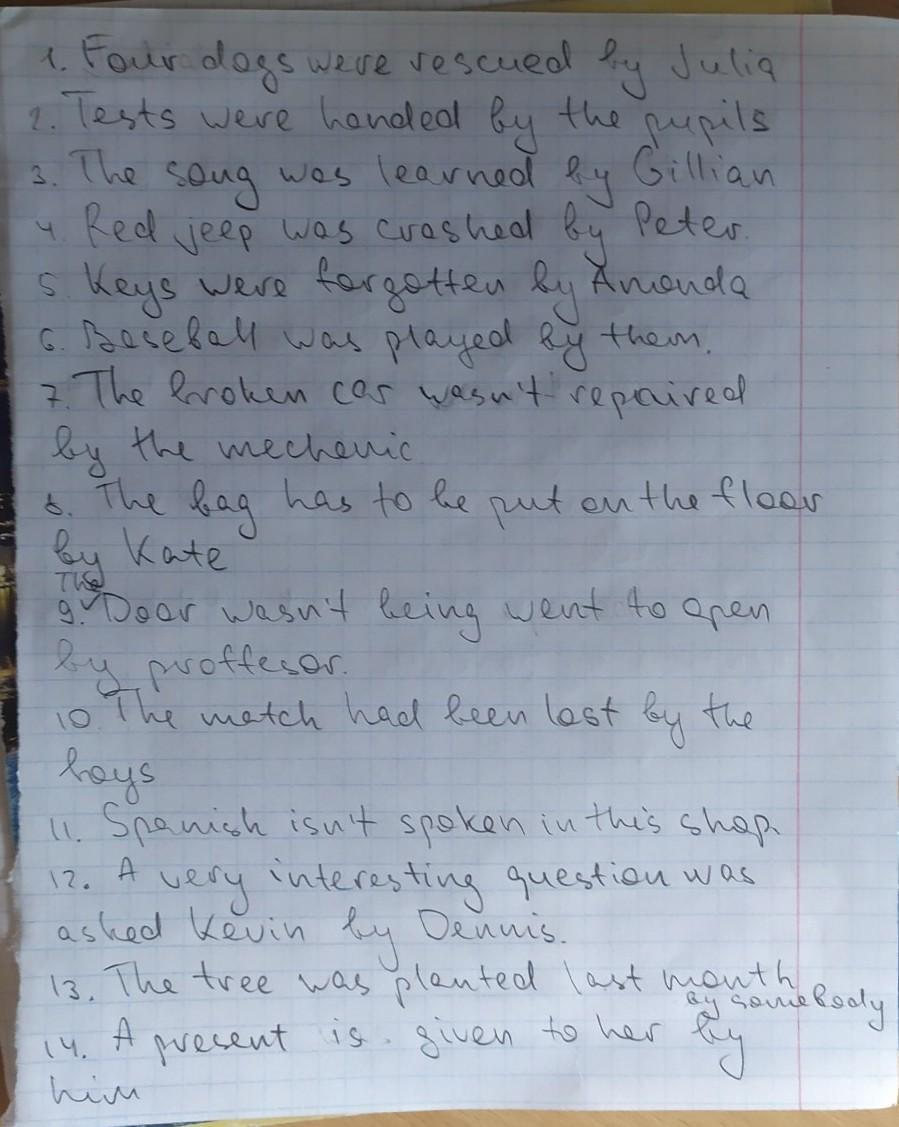 1. Four dogs were rescued by Julia
2. Tests were handed by the pupils
3. The song was learned by Gillian
4. Red jeep was crashed by Peter.
5. Keys were forgotten by Amanda
6. Baseball was played by them.
7. The broken car wasn't repaired
by the mechenic
8. The bag has to be put on the floor
by Kate
The
9. Door wasn't being went to open
by proffesor.
10. The match had been lost by the
boys
11. Spanish isn't spoken in this shop.
12. A very interesting question was
asked Kevin by Dennis.
13. The tree was planted last month
by somebody
14. A present is given to her by
him